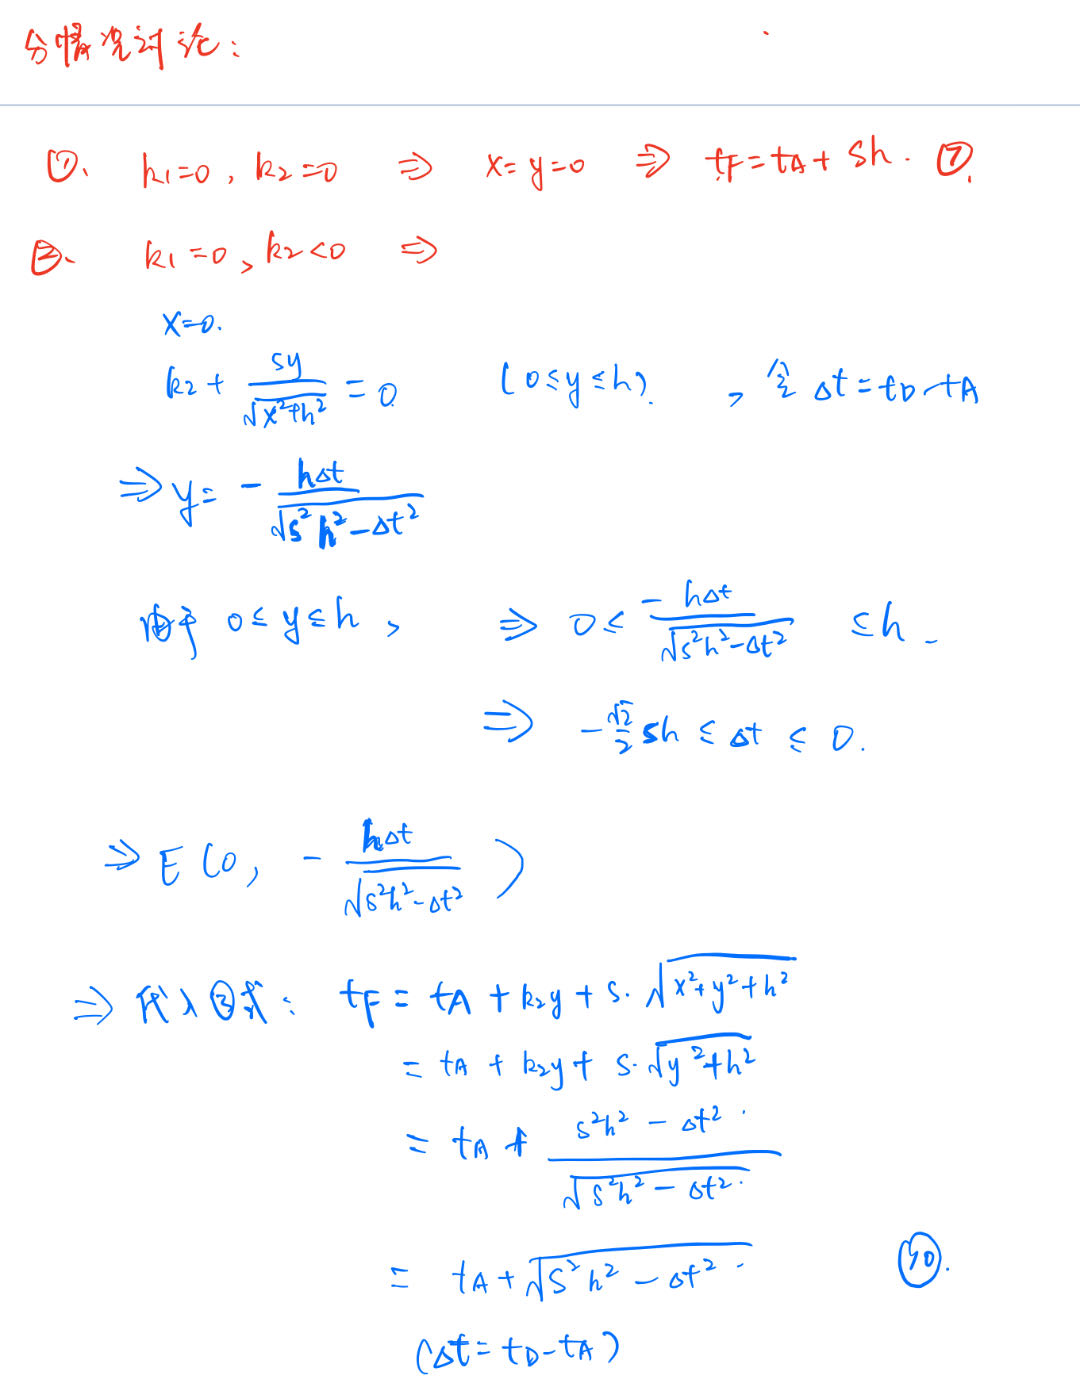 分情况讨论：
①、 k₁=0, k₂=0 ⇒ x=y=0 ⇒ t_F=t_A+sh. ⑦.
②、 k₁=0, k₂<0 ⇒
x=0.
k₂ + sy/√(x²+h²) = 0. (0≤y≤h). , 令 Δt=t_D-t_A
⇒ y= - hΔt/√(s²h²-Δt²)
由于 0≤y≤h, ⇒ 0≤ -hΔt/√(s²h²-Δt²) ≤h.
⇒ -√2/2 sh ≤ Δt ≤ 0.
⇒ E(0, - hΔt/√(s²h²-Δt²))
⇒ 代入③式: t_F = t_A + k₂y + s·√(x²+y²+h²)
= t_A + k₂y + s·√(y²+h²)
= t_A + (s²h²-Δt²)/√(s²h²-Δt²)
= t_A + √(s²h²-Δt²) ⑩.
(Δt=t_D-t_A)